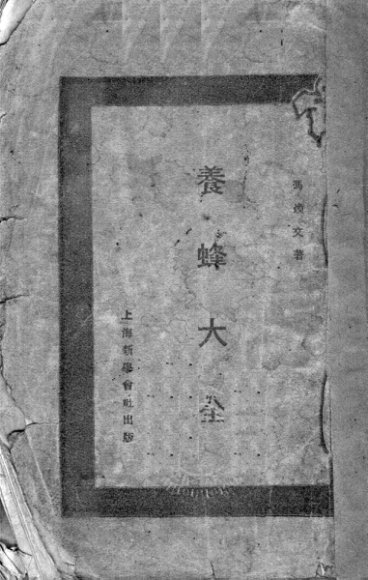 馮煥文著
養蜂大全
上海新學會社出版